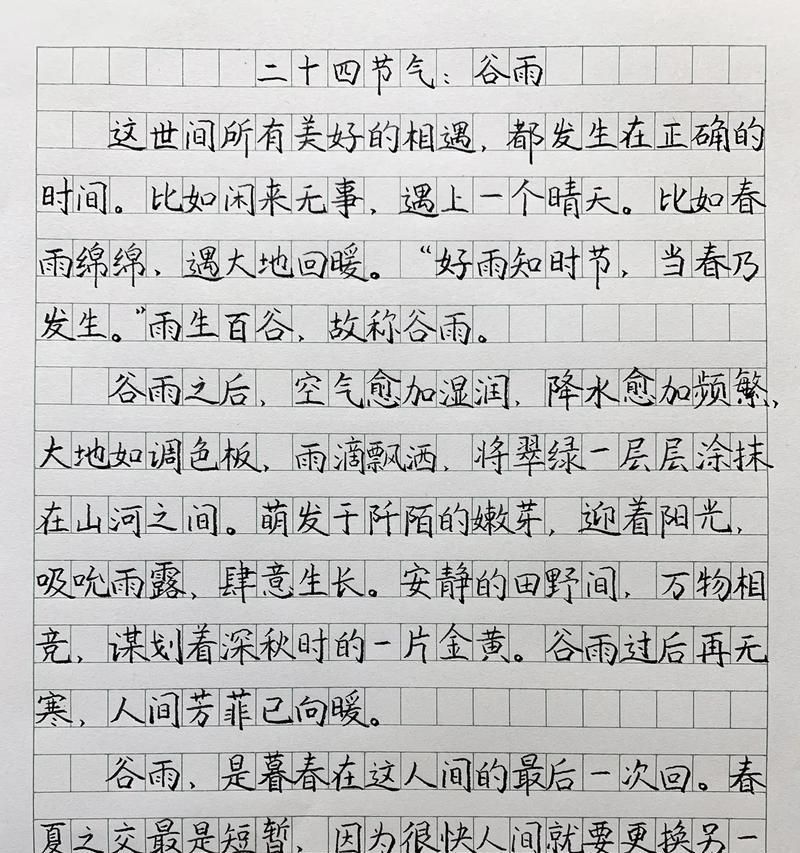 二十四节气：谷雨
这世间所有美好的相遇，都发生在正确的
时间。比如闲来无事，遇上一个晴天。比如春
雨绵绵，遇大地回暖。“好雨知时节，当春乃
发生。”雨生百谷，故称谷雨。
谷雨之后，空气愈加湿润，降水愈加频繁，
大地如调色板，雨滴飘洒，将翠绿一层层涂抹
在山河之间。萌发于阡陌的嫩芽，迎着阳光，
吸吮雨露，肆意生长。安静的田野间，万物相
竞，谋划着深秋时的一片金黄。谷雨过后再无
寒，人间芳菲已向暖。
谷雨，是暮春在这人间的最后一次回。春
夏之交最是短暂，因为很快人间就要更换另一